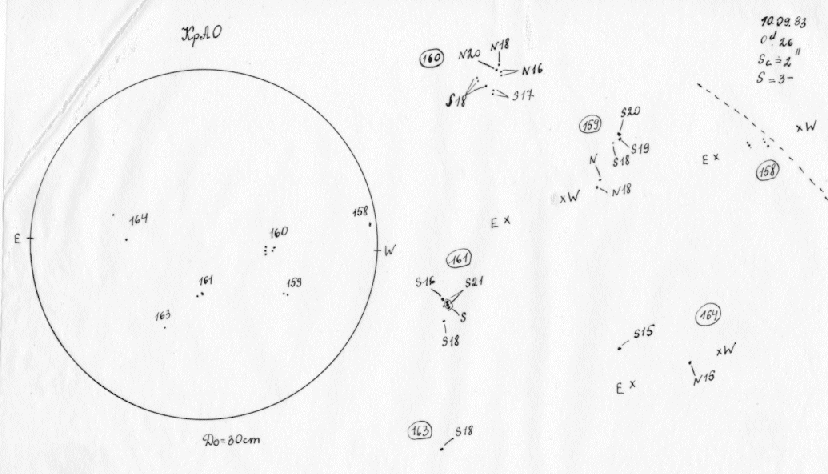 КрАО
10.09.83
0d.26
Sc=2"
S=3-
160
N20
N18
N16
S18
S17
159
S20
S19
S18
N
N18
xW
E x
158
xW
E x
164
160
158
E
W
161
159
163
161
S16
S21
S
S18
164
S15
xW
N15
E x
163
S18
D⊙=30cm